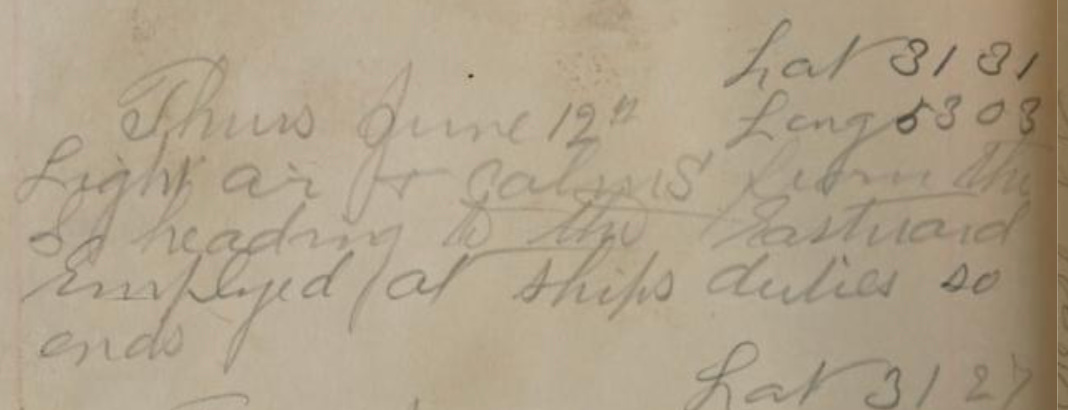 Lat 31 31
Thurs June 12th Long 53 03
Light air & calms from the
Sd heading to the Eastward
Employed at ships duties so
ends
Lat 31 27